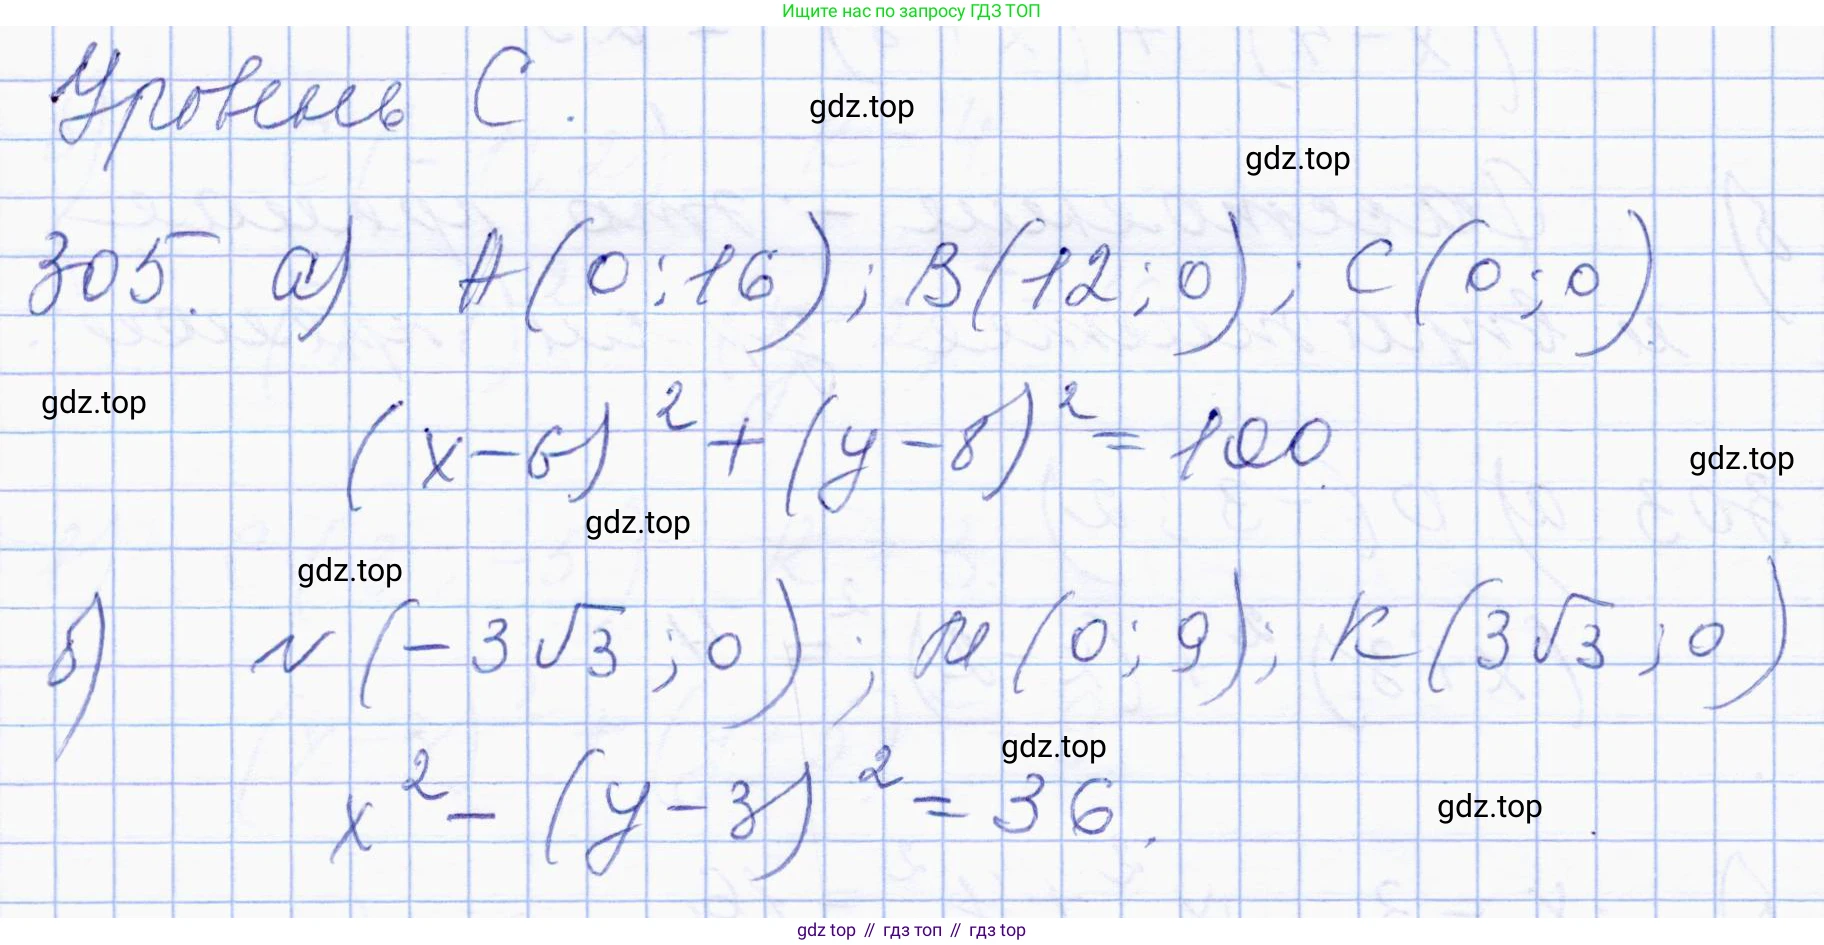 Ищите нас по запросу ГДЗ ТОП
Уровень С.
gdz.top
gdz.top
305. а) A(0;16); B(12;0); C(0;0).
gdz.top
(x-6)² + (y-8)² = 100.
gdz.top
gdz.top
gdz.top
б) N(-3√3;0); M(0;9); K(3√3;0)
gdz.top
x² - (y-3)² = 36.
gdz.top
gdz top // гдз топ // гдз top